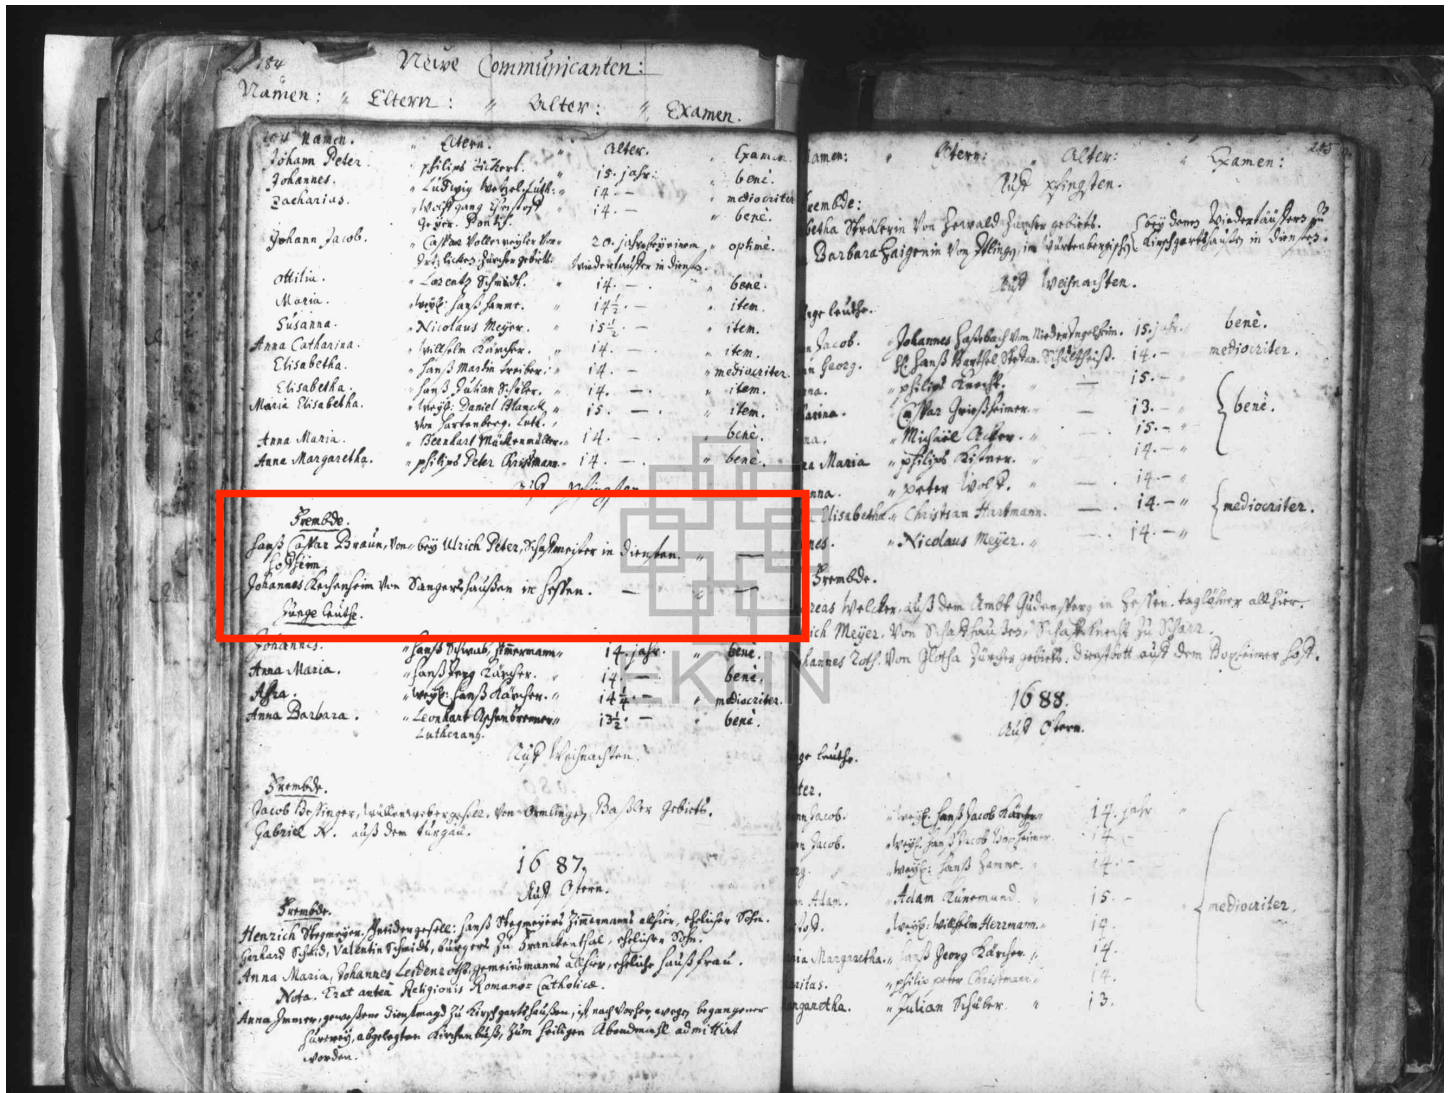 184
Neüe Communicanten:
Namen: " Eltern: " Alter: " Examen.
184 Namen. " Eltern. " Alter. " Examen.
Johann Peter. " philips 15. jahr. " benè.
Johannes. " Ludwig Wetzel, Luth. " 14. — " mediocriter
Zacharias. " Wolfgang 14. — " benè.
Geyer. Pontif.
Johann Jacob. " Caspar Vollenweyler von 20. jahr bey einem " optimè.
Zürcher gebiets. Wiedertäuffer in diensten.
Ottilia. " Lorentz Schmidt. " 14. — . " benè.
Maria. " weyl: Hanß Hamme. " 14½ — . " item.
Susanna. " Nicolaus Meyer. " 15½ — . " item.
Anna Catharina. " Willhelm Kärcher. " 14. — . " item.
Elisabetha. " Hanß Martin Treiber. " 14. — . " mediocriter.
Elisabetha. " Hanß Julian Schüber. " 14. — . " item.
Maria Elisabetha. " weyl: Daniel Blanck, " 15. — . " item.
von Hartenberg. Luth. "
Anna Maria. " Bernhart Mückenmüller. " 14. — . " benè.
Anna Margaretha. " philips Peter Christmann. " 14. — . " benè.
Auf Pfingsten
Frembde.
Hanß Caspar Braun, von bey Ulrich Peter, Schafmeister in diensten. " —
Hofheim,
Johannes Kechenheim von Sangershaußen in Hessen. — " —
Junge leuthe.
Johannes. " Hanß Schwab, Zimmermann " 14. jahr. " benè.
Anna Maria. " Hanß Jerg Kärcher. " 14. — . " benè.
Afra. " weyl: Hanß Kärcher. " 14¼. — " mediocriter.
Anna Barbara. " Leonhart Aschenbrenner " 13½. — " benè.
Lutheranq.
Auf Weihnachten.
Frembde.
Jacob Bessinger, wüllenwebergesell. von Ormlingen Baßler Gebiets.
Gabriel N. auß dem Turgau.
1687.
Auf Ostern.
Frembde.
Henrich Stegmeyer, gesell: Hanß Stegmeyers Zimmermanns allhier, ehelicher Sohn.
Gerhard Schmid, Valentin Schmids, burgers zu Franckenthal, ehelicher Sohn.
Anna Maria, Johannes Leidenroths, gemeinsmanns allhier, eheliche haußfrau.
Nota. Erat anteà Religionis Romano-Catholicæ.
Anna Immer, geweßene dienstmagd zu Kirschgartshaußen, ist nach vorher, wegen begangener
hurerey, abgelegter Kirchenbuß, zum heiligen Abendmahl admittirt
worden.
185
amen: " Eltern: " Alter: " Examen:
Auf pfingsten.
rembde:
betha Strälerin von Zürcher gebiets. bey denen Wiedertäuffern zu
Barbara Zaigenin von im Würtenbergischen Kirschgartshaußen in diensten.
Auf Weihnachten.
nge leuthe.
n Jacob. " Johannes Haßbach von Niederingelheim. 15. jahr. benè.
n Georg. Hanß Barthel Stephan, Schultheiß. 14. — mediocriter.
na. " philips Knecht. — 15. — "
arina. Caspar Grießheimer. " — 13. — " benè.
na. " Michaël Acker. " — . 15. — "
na Maria " philips Kißner. " . 14. — "
nna. " peter Wolf. " — . 14. — "
Elisabetha. " Christian Hartmann. — . 14. — " mediocriter.
nes. " Nicolaus Meyer. " — . 14. — "
Frembde.
reas Welcker, auß dem Ambt Gudensperg in Hessen. taglöhner allhier.
rich Meyer. von Schafhaußen, Schafknecht zu Scharr.
hannes Roth. von Glotha Zürcher gebiets. dienstbott auf dem Boxheimer hoff.
1688.
Auf Ostern.
nge leuthe.
ter.
nn Jacob. " weyl: Hanß Jacob Kärcher 14. jahr "
n Jacob. " weyl. Hanß Jacob Boxheimer. 14. —
rg. " weyl: Hanß Hamme. " 14. —
n Adam. Adam Künemund. " 15. — mediocriter.
stoph. " weyl: Willhelm Herrmann. " 14.
ria Margaretha. " Hanß Georg Kärcher. " 14.
ritas. " philips peter Christmann. " 14.
rgaretha. " Julian Schüber. " 13.
EKHN